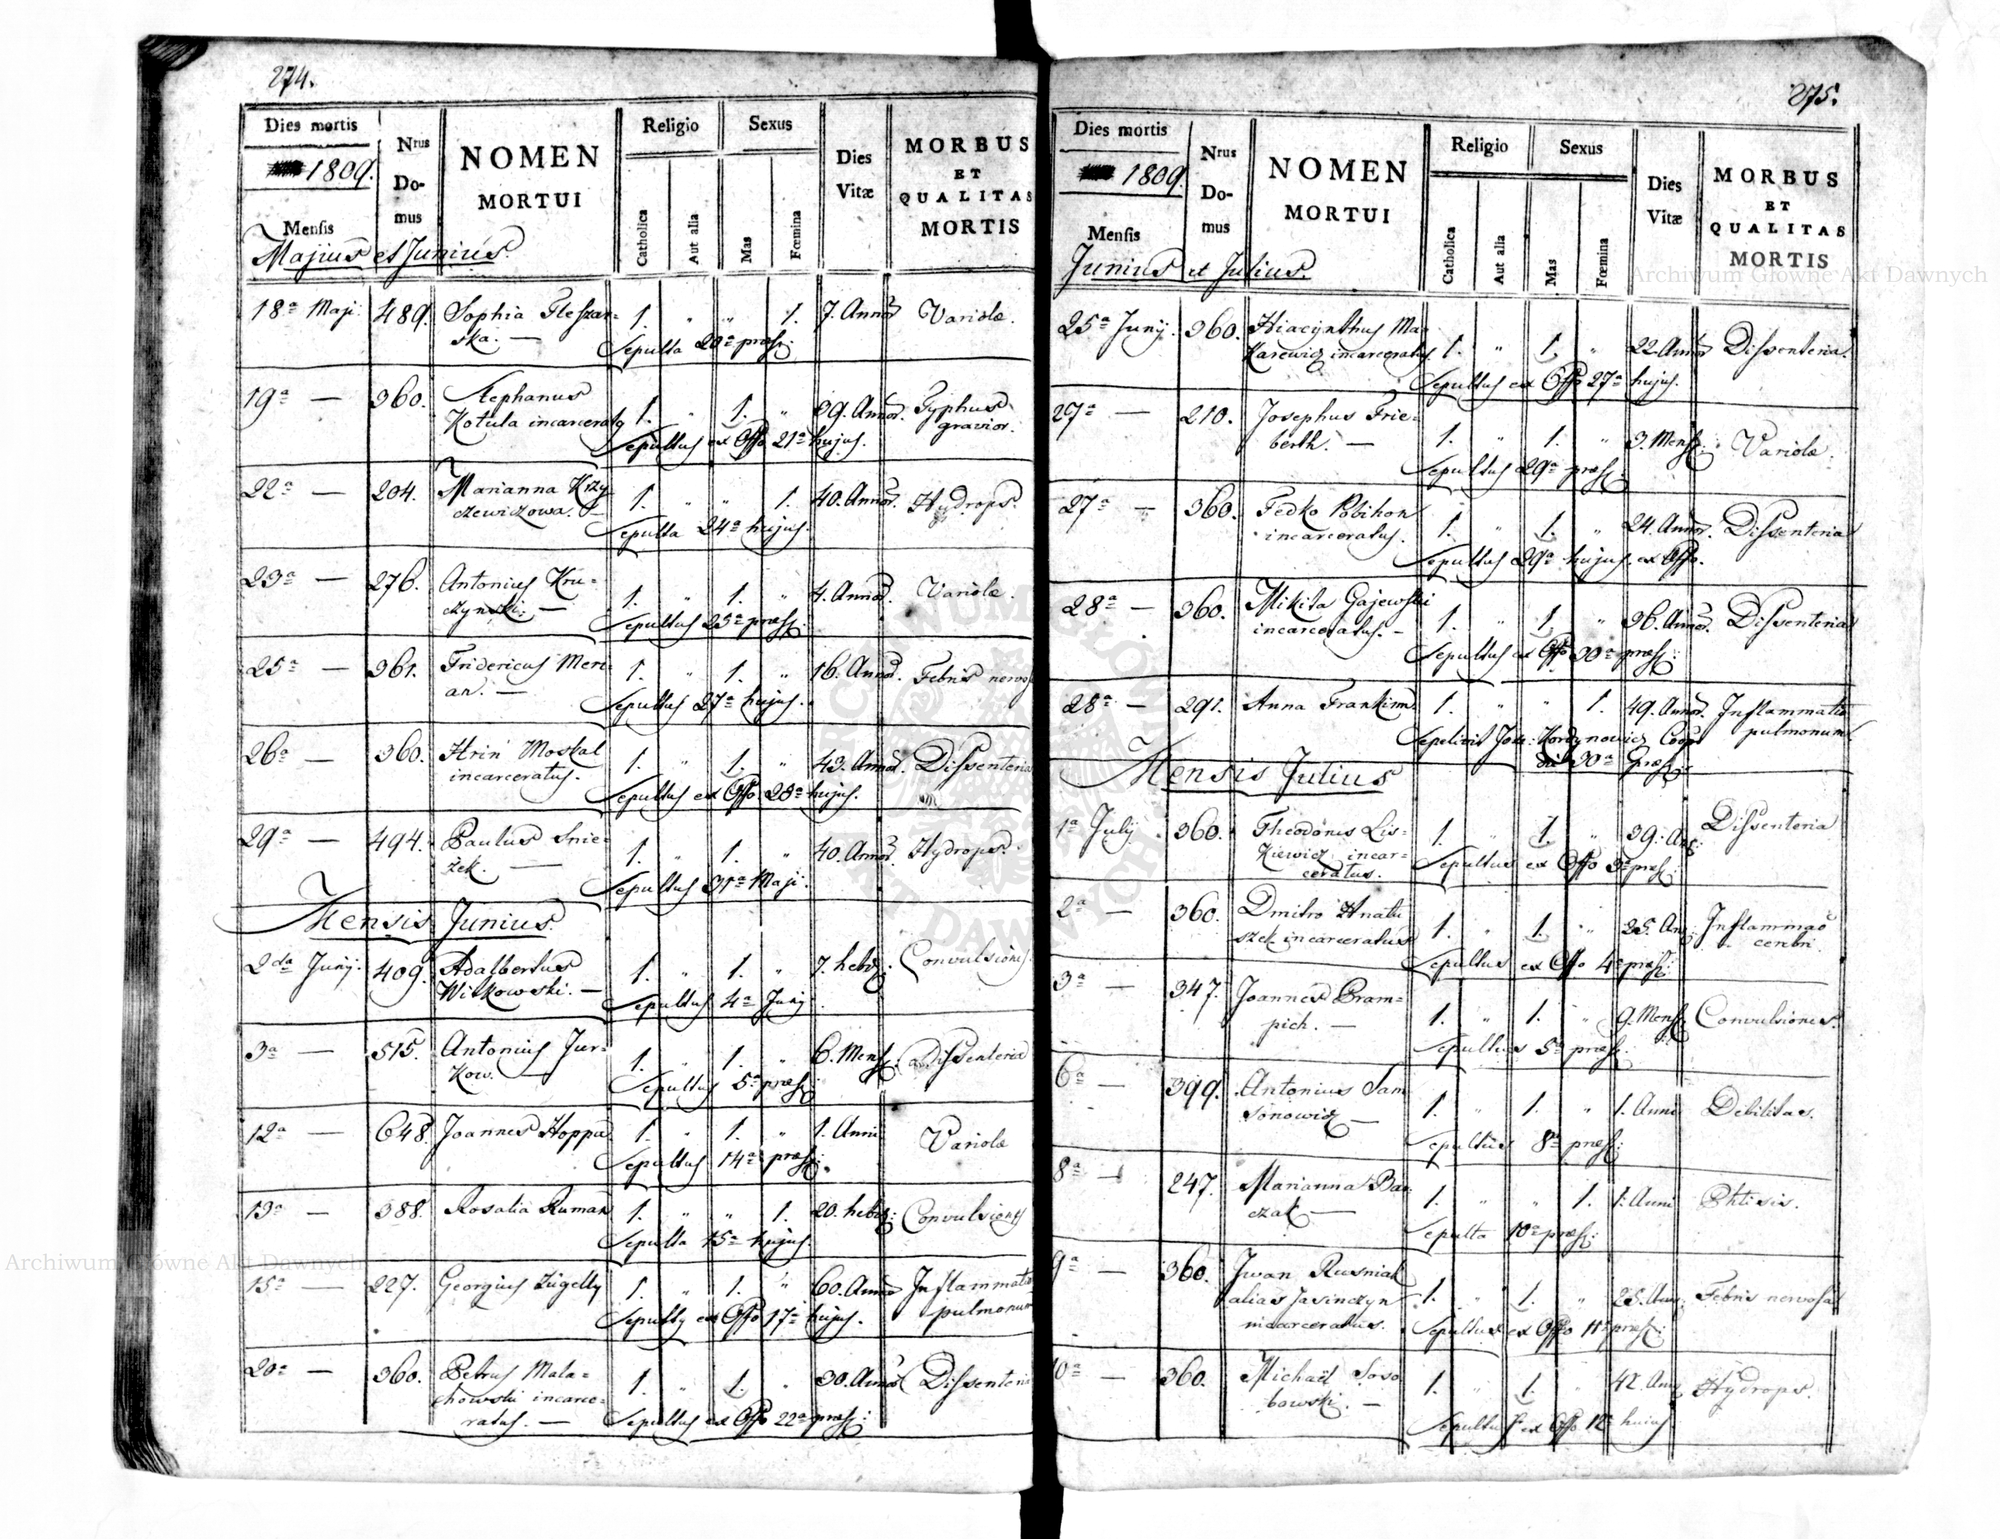 274.
Dies mortis
1809.
Mensis
Nrus
Do-
mus
NOMEN
MORTUI
Religio
Catholica
Aut alia
Sexus
Mas
Fœmina
Dies
Vitæ
MORBUS
ET
QUALITAS
MORTIS
Majius et Junius.
18a Maji 489. Sophia Fleszar= 1. " " 1. 7. Annor Variolæ.
ska. —
Sepulta 20a præs:
19a — 360. Stephanus
Kotula incarceratus 1. " 1. " 39. Annor. Typhus
gravior.
Sepultus ex Offo 21a hujus.
22a — 204. Marianna Krzy 1. " " 1. 40. Annor. Hydrops.
czewiczowa. —
Sepulta 24a hujus.
23a — 276. Antonius Kru= 1. " 1. " 4. Annor. Variolæ.
czynski. —
Sepultus 25a præs:
25a — 361. Fridericus Meri= 1. " 1. " 16. Annor. Febris nervos
an. —
Sepultus 27a hujus.
26a — 360. Hrin Moskal 1. " 1. " 43. Annor. Dissenteria
incarceratus.
Sepultus ex Offo 28a hujus.
29a — 494. Paulus Snie= 1. " 1. " 40. Annor. Hydrops.
żek. —
Sepultus 31a Maji.
Mensis Junius.
2da Junij. 409. Adalbertus 1. " 1. " 7. hebd: Convulsiones
Witkowski. —
Sepultus 4a Junij
3a — 515. Antonius Jur= 1. " 1. " 6. Mens: Dissenteria
kow. —
Sepultus 5a præs:
12a — 648. Joannes Hoppa 1. " 1. " 1. Anni Variolæ
Sepultus 14a præs:
13a — 388. Rosalia Ruman 1. " " 1. 20. hebd: Convulsiones
Sepulta 15a hujus.
15a — 227. Georgius Zügelly 1. " 1. " 60. Annor Inflammatio
pulmonum
Sepultus ex Offo 17a hujus.
20a — 360. Petrus Mala= 1. " 1. " 30. Annor Dissenteria
chowski incarce=
ratus. —
Sepultus ex Offo 22a præs:
275.
Dies mortis
1809.
Mensis
Nrus
Do-
mus
NOMEN
MORTUI
Religio
Catholica
Aut alia
Sexus
Mas
Fœmina
Dies
Vitæ
MORBUS
ET
QUALITAS
MORTIS
Junius et Julius.
25a Junij. 360. Hiacynthus Ma=
karewicz incarceratus. 1. " 1. " 22. Annor Dissenteria.
Sepultus ex Offo 27a hujus.
27a — 210. Josephus Frie=
berth. — 1. " 1. " 3. Mens: Variolæ.
Sepultus 29a præs:
27a — 360. Fedko Pobihon
incarceratus. 1. " 1. " 24. Annor. Dissenteria
Sepultus 29a hujus. ex Offo.
28a — 360. Mikita Gajewski
incarceratus. — 1. " 1. " 36. Annor. Dissenteria
Sepultus ex Offo 30a præs:
28a — 291. Anna Frankinn 1. " " 1. 49. Annor. Inflammatio
pulmonum.
Sepelivit Jos: Kordynowicz Coop:
die 30a præs:
Mensis Julius
1a Julij 360. Theodorus Lis= 1. " 1. " 39. An: Dissenteria
kiewicz incar=
ceratus.
Sepultus ex Offo 3a præs:
2a — 360. Dmitro Hnatu
szek incarceratus 1. " 1. " 25. An: Inflammao
cerebri.
Sepultus ex Offo 4a præs:
3a — 347. Joannes Pram=
pich. — 1. " 1. " 9. Mens: Convulsiones.
Sepultus 5a præs:
6a — 399. Antonius Sam
sonowicz — 1. " 1. " 1. Anni Debilitas.
Sepultus 8a præs:
8a — 247. Marianna Bar
czak — 1. " " 1. 1. Anni Phtisis.
Sepulta 10a præs:
9a — 360. Jwan Rusniak
alias Jasinczyn
incarceratus. 1. " 1. " 25. Ann: Febris nervosa
Sepultus ex Offo 11a præs:
10a — 360. Michael Soso
bowski. — 1. " 1. " 42. Ann: Hydrops.
Sepultus ex Offo 12a hujus
Archiwum Główne Akt Dawnych
Archiwum Główne Akt Dawnych
ARCHIWUM GŁÓWNE
AKT DAWNYCH